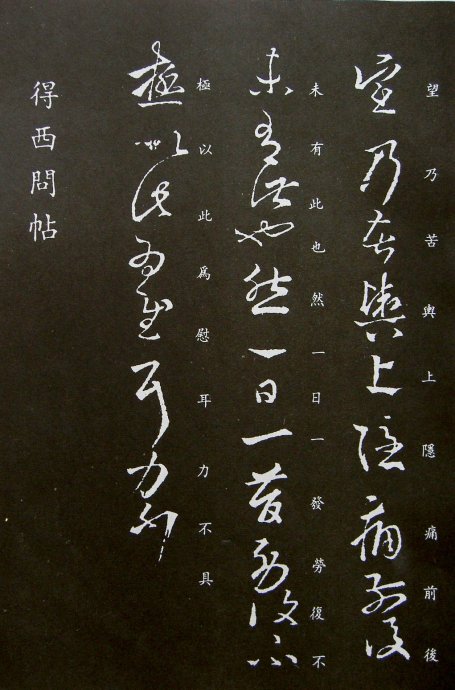 望乃苦輿上隱痛前後
未有此也然一日一發勞復不
極以此為慰耳力不具
得西問帖